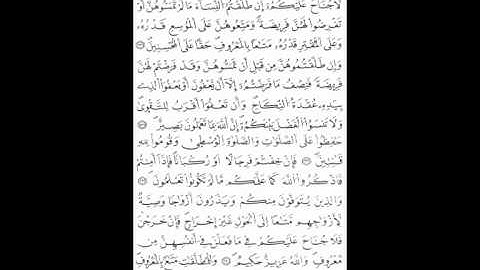 لَّا جُنَاحَ عَلَيْكُمْ إِن طَلَّقْتُمُ ٱلنِّسَآءَ مَا لَمْ تَمَسُّوهُنَّ أَوْ
تَفْرِضُوا۟ لَهُنَّ فَرِيضَةً ۚ وَمَتِّعُوهُنَّ عَلَى ٱلْمُوسِعِ قَدَرُهُۥ
وَعَلَى ٱلْمُقْتِرِ قَدَرُهُۥ مَتَٰعًۢا بِٱلْمَعْرُوفِ ۖ حَقًّا عَلَى ٱلْمُحْسِنِينَ
وَإِن طَلَّقْتُمُوهُنَّ مِن قَبْلِ أَن تَمَسُّوهُنَّ وَقَدْ فَرَضْتُمْ لَهُنَّ
فَرِيضَةً فَنِصْفُ مَا فَرَضْتُمْ إِلَّآ أَن يَعْفُونَ أَوْ يَعْفُوَا۟ ٱلَّذِى
بِيَدِهِۦ عُقْدَةُ ٱلنِّكَاحِ ۚ وَأَن تَعْفُوٓا۟ أَقْرَبُ لِلتَّقْوَىٰ ۚ
وَلَا تَنسَوُا۟ ٱلْفَضْلَ بَيْنَكُمْ ۚ إِنَّ ٱللَّهَ بِمَا تَعْمَلُونَ بَصِيرٌ
حَٰفِظُوا۟ عَلَى ٱلصَّلَوَٰتِ وَٱلصَّلَوٰةِ ٱلْوُسْطَىٰ وَقُومُوا۟ لِلَّهِ
قَٰنِتِينَ فَإِنْ خِفْتُمْ فَرِجَالًا أَوْ رُكْبَانًا ۖ فَإِذَآ أَمِنتُمْ
فَٱذْكُرُوا۟ ٱللَّهَ كَمَا عَلَّمَكُم مَّا لَمْ تَكُونُوا۟ تَعْلَمُونَ
وَٱلَّذِينَ يُتَوَفَّوْنَ مِنكُمْ وَيَذَرُونَ أَزْوَٰجًا وَصِيَّةً
لِّأَزْوَٰجِهِم مَّتَٰعًا إِلَى ٱلْحَوْلِ غَيْرَ إِخْرَاجٍ ۚ فَإِنْ خَرَجْنَ
فَلَا جُنَاحَ عَلَيْكُمْ فِى مَا فَعَلْنَ فِىٓ أَنفُسِهِنَّ مِن
مَّعْرُوفٍ ۗ وَٱللَّهُ عَزِيزٌ حَكِيمٌ وَلِلْمُطَلَّقَٰتِ مَتَٰعٌۢ بِٱلْمَعْرُوفِ